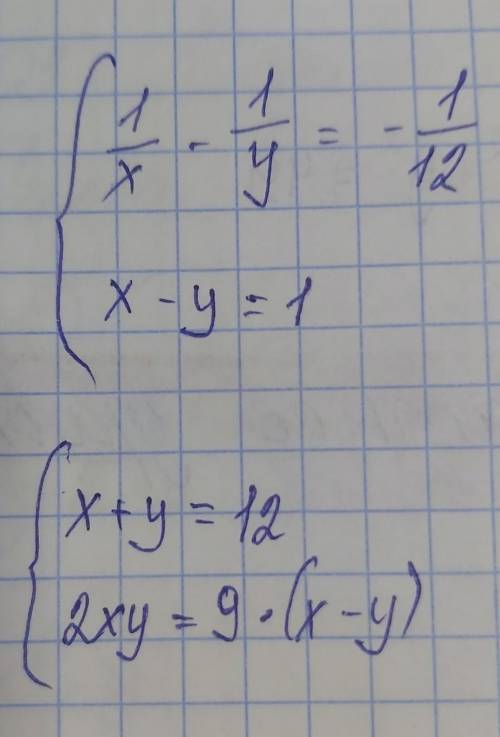 1/x - 1/y = - 1/12
x - y = 1
x + y = 12
2xy = 9 · (x - y)